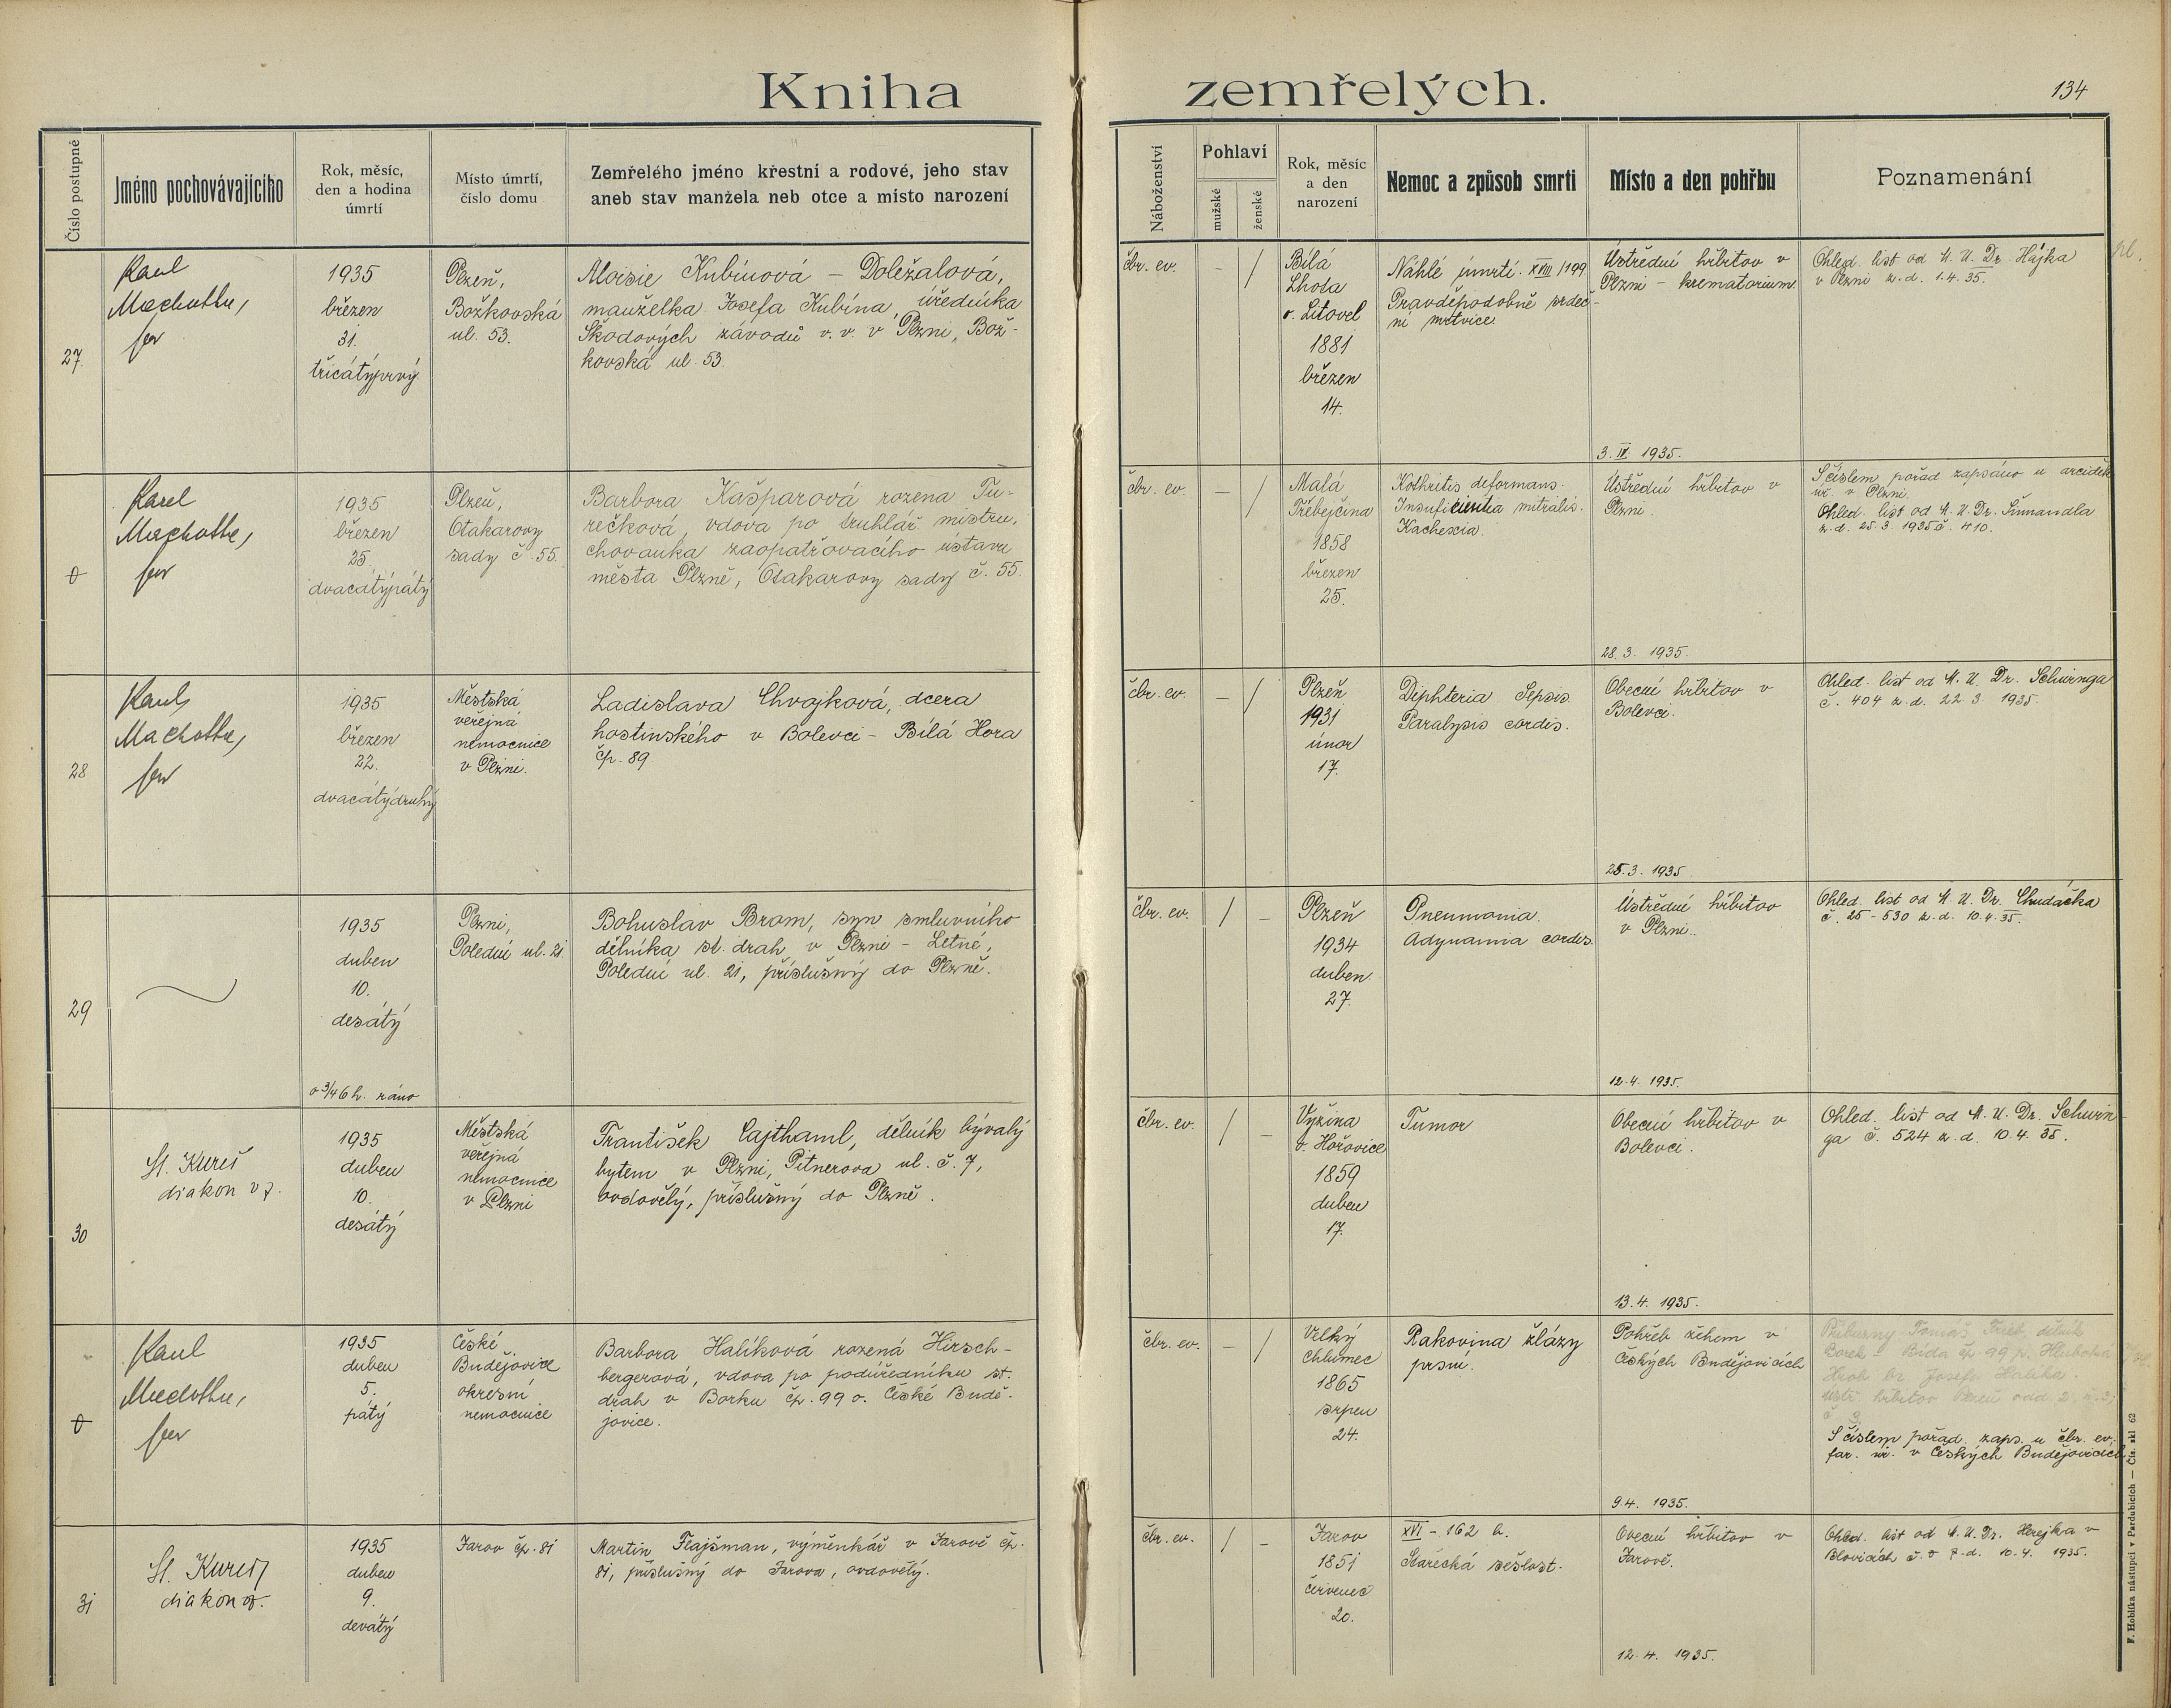 Kniha zemřelých.
134
Číslo postupné
Jméno pochovávajícího
Rok, měsíc,
den a hodina
úmrtí
Místo úmrtí,
číslo domu
Zemřelého jméno křestní a rodové, jeho stav
aneb stav manžela neb otce a místo narození
Náboženství
Pohlaví
mužské
ženské
Rok, měsíc
a den
narození
Nemoc a způsob smrti
Místo a den pohřbu
Poznamenání
27.
Karel
Machotka,
far
1935
březen
31.
třicátýprvý
Plzeň,
Božkovská
ul. 53.
Aloisie Kubínová – Doležalová,
manželka Josefa Kubína, úředníka
Škodových závodů v. v. v Plzni, Bož-
kovská ul. 53
čbr. ev.
–
/
Bílá
Lhota
o. Litovel
1881
březen
14.
Náhlé úmrtí. XVIII/199
Pravděpodobně srdeč-
ní mrtvice.
Ústřední hřbitov v
Plzni – krematorium
3. IV. 1935.
Ohled. list od M. U. Dr. Hájka
v Plzni z. d. 1.4.35.
pl.
0
Karel
Machotka,
far
1935
březen
25
dvacátýpátý
Plzeň,
Otakarovy
sady č. 55
Barbora Kašparová rozená Tu-
rečková, vdova po truhlář. mistru,
chovanka zaopatřovacího ústavu
města Plzně, Otakarovy sady č. 55.
čbr. ev.
–
/
Malá
Třebejčina
1858
březen
25.
Kothritis deformans.
Insuficientia mitralis.
Kachexia.
Ústřední hřbitov v
Plzni.
28. 3. 1935.
S číslem pořad zapsáno u arciděk.
úř. v Plzni.
Ohled. list od M. U. Dr. Šimandla
z. d. 25.3. 1935 č. 410.
28
Karel
Machotka,
far
1935
březen
22.
dvacátýdruhý
Městská
veřejná
nemocnice
v Plzni.
Ladislava Chvojková, dcera
hostinského v Bolevci – Bílá Hora
čp. 89
čbr. ev.
–
/
Plzeň
1931
únor
17.
Diphteria Sepsis.
Paralysis cordis.
Obecní hřbitov v
Bolevci.
25. 3. 1935
Ohled. list od M. U. Dr. Schuringa
č. 404 z. d. 22 3 1935.
29
1935
duben
10.
desátý
o 3/4 6 h. ráno
Plzni,
Polední ul. 21.
Bohuslav Brom, syn smluvního
dělníka st. drah v Plzni – Letné,
Polední ul. 21, příslušný do Plzně.
čbr. ev.
/
–
Plzeň
1934
duben
27.
Pneumonia.
Adynamia cordis.
Ústřední hřbitov
v Plzni.
12.4. 1935.
Ohled. list od M. U. Dr. Chudáčka
č. 25-530 z. d. 10.4.35.
30
St. Kureš
diakon vz.
1935
duben
10.
desátý
Městská
veřejná
nemocnice
v Plzni
František Cajthaml, dělník bývalý
bytem v Plzni, Pitnerova ul. č. 7,
ovdovělý, příslušný do Plzně.
čbr. ev.
/
–
Vyžina
o. Hořovice
1859
duben
17.
Tumor
Obecní hřbitov v
Bolevci.
13.4. 1935.
Ohled. list od M. U. Dr. Schurin-
ga č. 524 z. d. 10.4. 35.
0
Karel
Machotka,
far
1935
duben
5.
pátý
České
Budějovice
okresní
nemocnice
Barbora Halíková rozená Hirsch-
bergerová, vdova po podúředníku st.
drah v Borku čp. 99 o. České Budě-
jovice.
čbr. ev.
–
/
Velký
Chlumec
1865
srpen
24.
Rakovina žlázy
prsní.
Pohřeb žehem v
Českých Budějovicích
9.4. 1935.
Příbuzný Tomáš dělník
Borek Bída čp. 99 p. Hluboká
Hrob br. Josefa Halíka.
ústř. hřbitov Plzeň odd 2,
č 3.
S číslem pořad. zaps. u čbr. ev.
far. úř. v Českých Budějovicích
31
St. Kureš
diakon vz.
1935
duben
9.
devátý
Jarov čp. 81
Martin Flajšman, výměnkář v Jarově čp.
81, příslušný do Jarova, ovdovělý.
čbr. ev.
/
–
Jarov
1851
červenec
20.
XVI – 162 b.
Stařecká sešlost.
Obecní hřbitov v
Jarově.
12. 4. 1935.
Ohled. list od M. U. Dr. Hrejka v
Blovicích č. 8 z. d. 10.4. 1935.
F. Hoblíka nástupci v Pardubicích — Čís. skl. 62